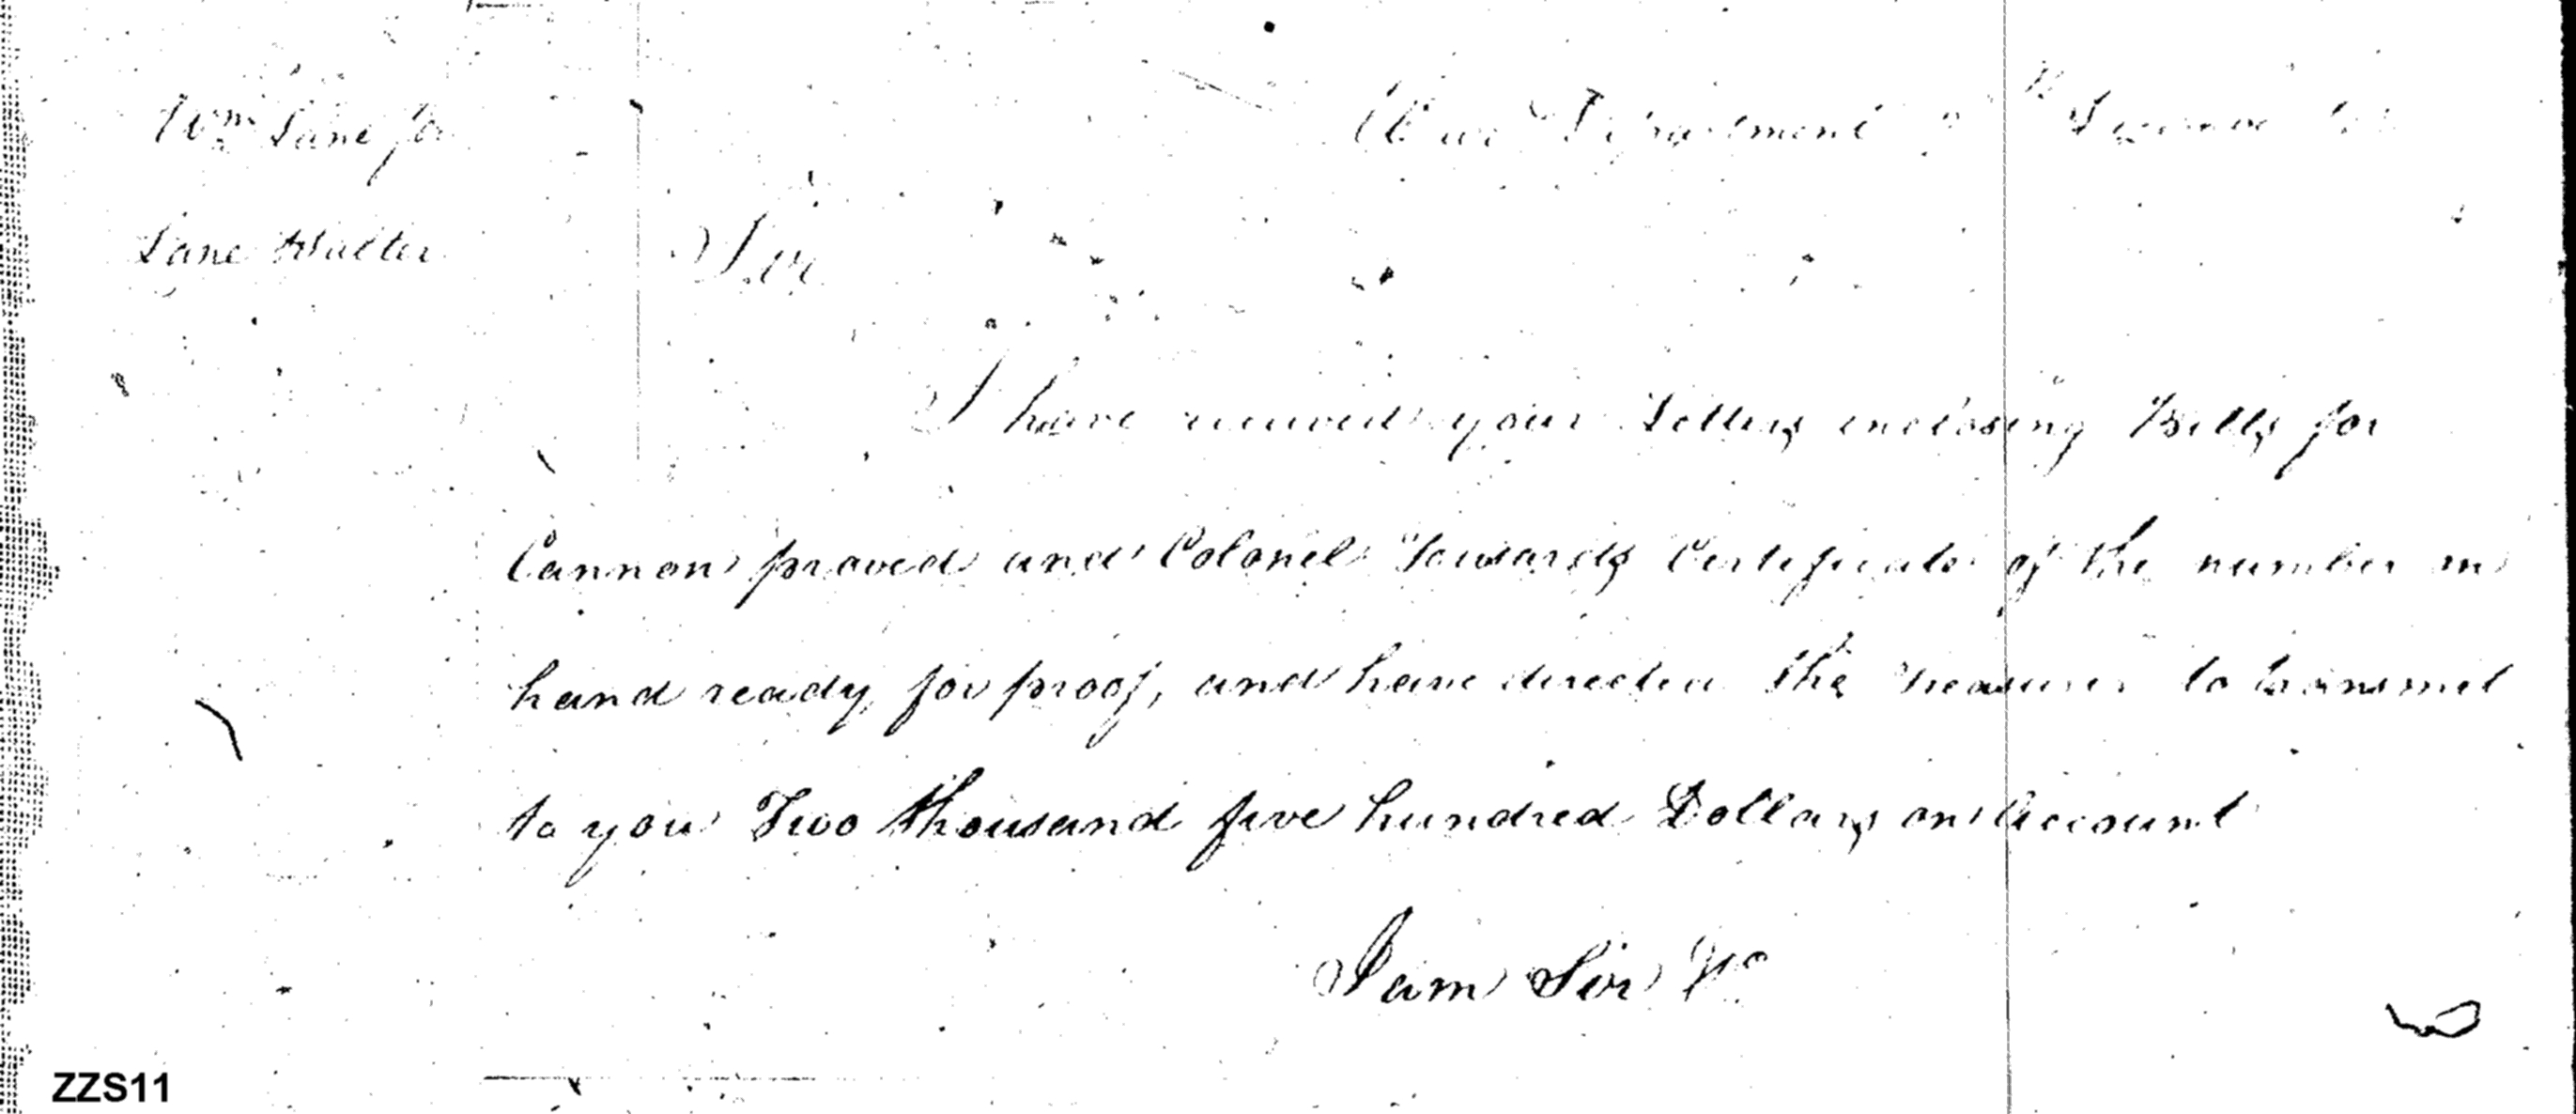 Wm Lane for
War Department
Lane Walter
Sir
I have received your Letters enclosing Bills for
Cannon proved and Colonel Towards Certificate of the number in
hand ready for proof, and have directed the Treasurer to transmit
to you Two thousand five hundred Dollars on Account
I am Sir &c
ZZS11